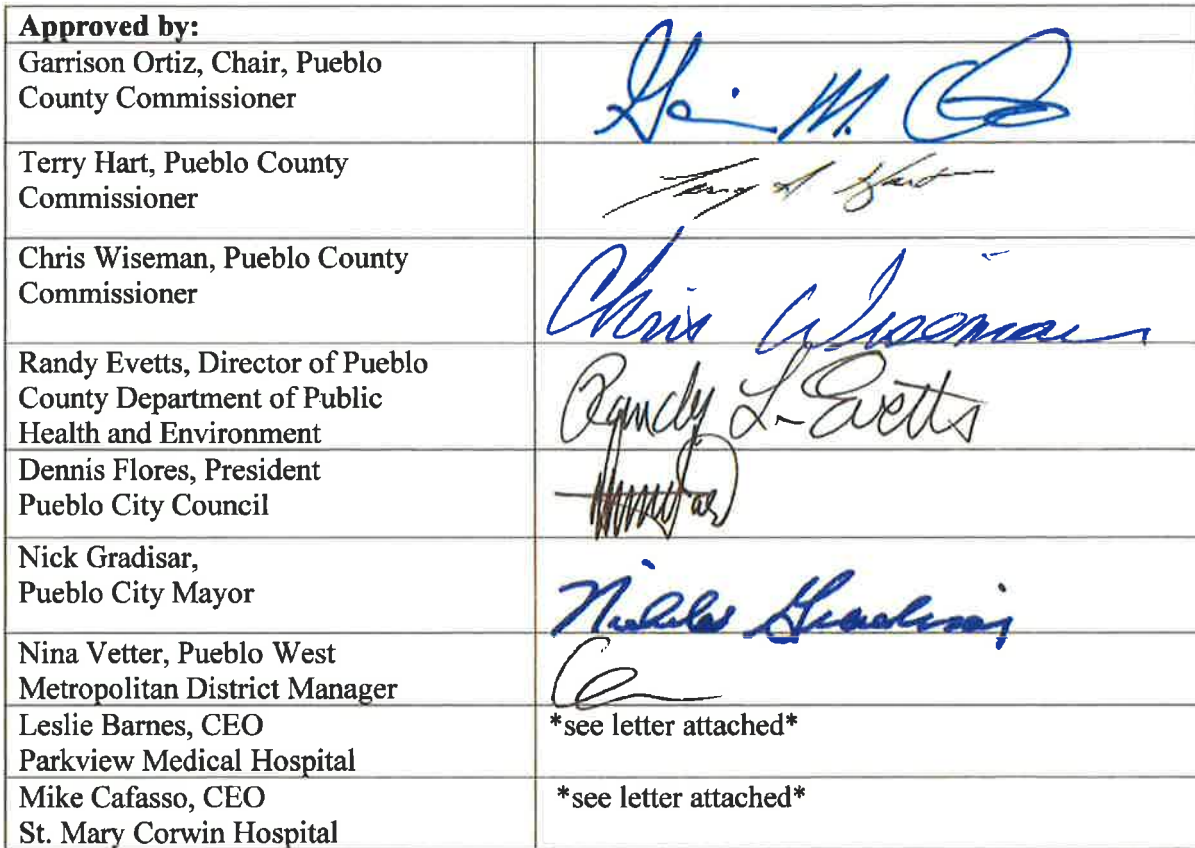 Approved by:
Garrison Ortiz, Chair, Pueblo
County Commissioner
Terry Hart, Pueblo County
Commissioner
Terry A Hart
Chris Wiseman, Pueblo County
Commissioner
Chris Wiseman
Randy Evetts, Director of Pueblo
County Department of Public
Health and Environment
Randy L. Evetts
Dennis Flores, President
Pueblo City Council
Nick Gradisar,
Pueblo City Mayor
Nicholas Gradisar
Nina Vetter, Pueblo West
Metropolitan District Manager
Leslie Barnes, CEO
Parkview Medical Hospital
*see letter attached*
Mike Cafasso, CEO
St. Mary Corwin Hospital
*see letter attached*